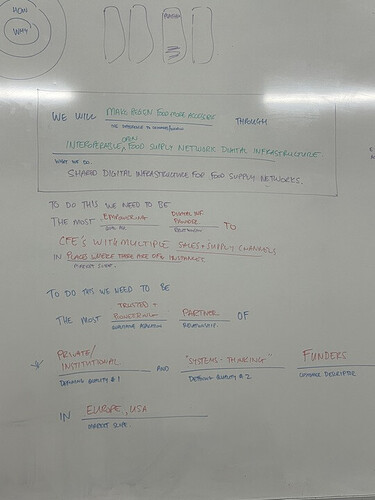 HOW
WHY
WE WILL MAKE REGEN FOOD MORE ACCESSIBLE THROUGH
INTEROPERABLE, OPEN FOOD SUPPLY NETWORK DIGITAL INFRASTRUCTURE
WHAT WE DO.
SHARED DIGITAL INFRASTRUCTURE FOR FOOD SUPPLY NETWORKS.
TO DO THIS WE NEED TO BE
THE MOST EMPOWERING DIGITAL INF. PROVIDER TO
CFE'S WITH MULTIPLE SALES + SUPPLY CHANNELS
IN PLACES WHERE THERE ARE OFN INSTANCES
MARKET SCOPE.
TO DO THIS WE NEED TO BE
THE MOST TRUSTED + PIONEERING PARTNER OF
RELATIONSHIP.
PRIVATE/ INSTITUTIONAL AND "SYSTEMS-THINKING" FUNDERS
DEFINING QUALITY #1 DEFINING QUALITY #2 CUSTOMER DESCRIPTOR
IN EUROPE, USA
MARKET SCOPE.